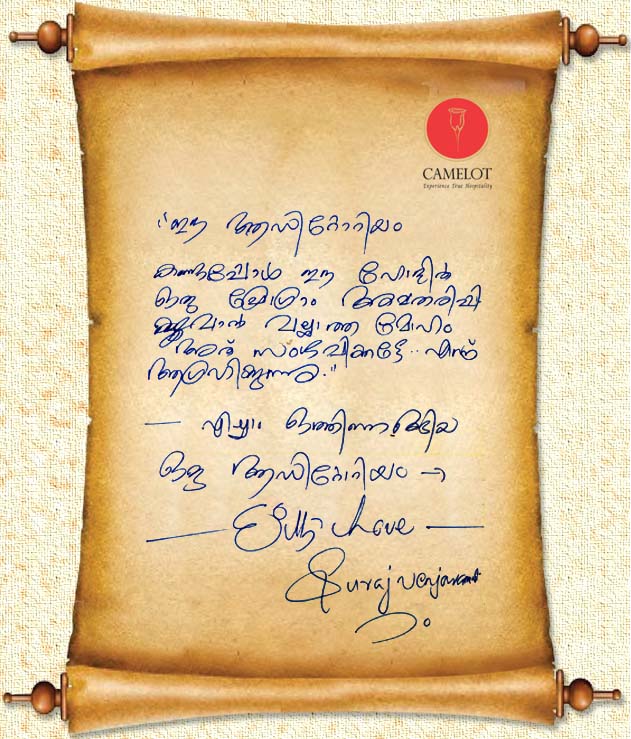 CAMELOT
Experience True Hospitality
"ഈ ആഡിറ്റോറിയം
കണ്ടപ്പോൾ ഈ വേദിയിൽ
ഒരു പ്രോഗ്രാം അവതരിപ്പി
ക്കുവാൻ വല്ലാത്ത മോഹം
അത് സംഭവിക്കട്ടേ.. എന്ന്
ആഗ്രഹിക്കുന്നു."
— എല്ലാം ഒത്തിണങ്ങിയ
ഒരു ആഡിറ്റോറിയം →
love
Suraj venjaramood